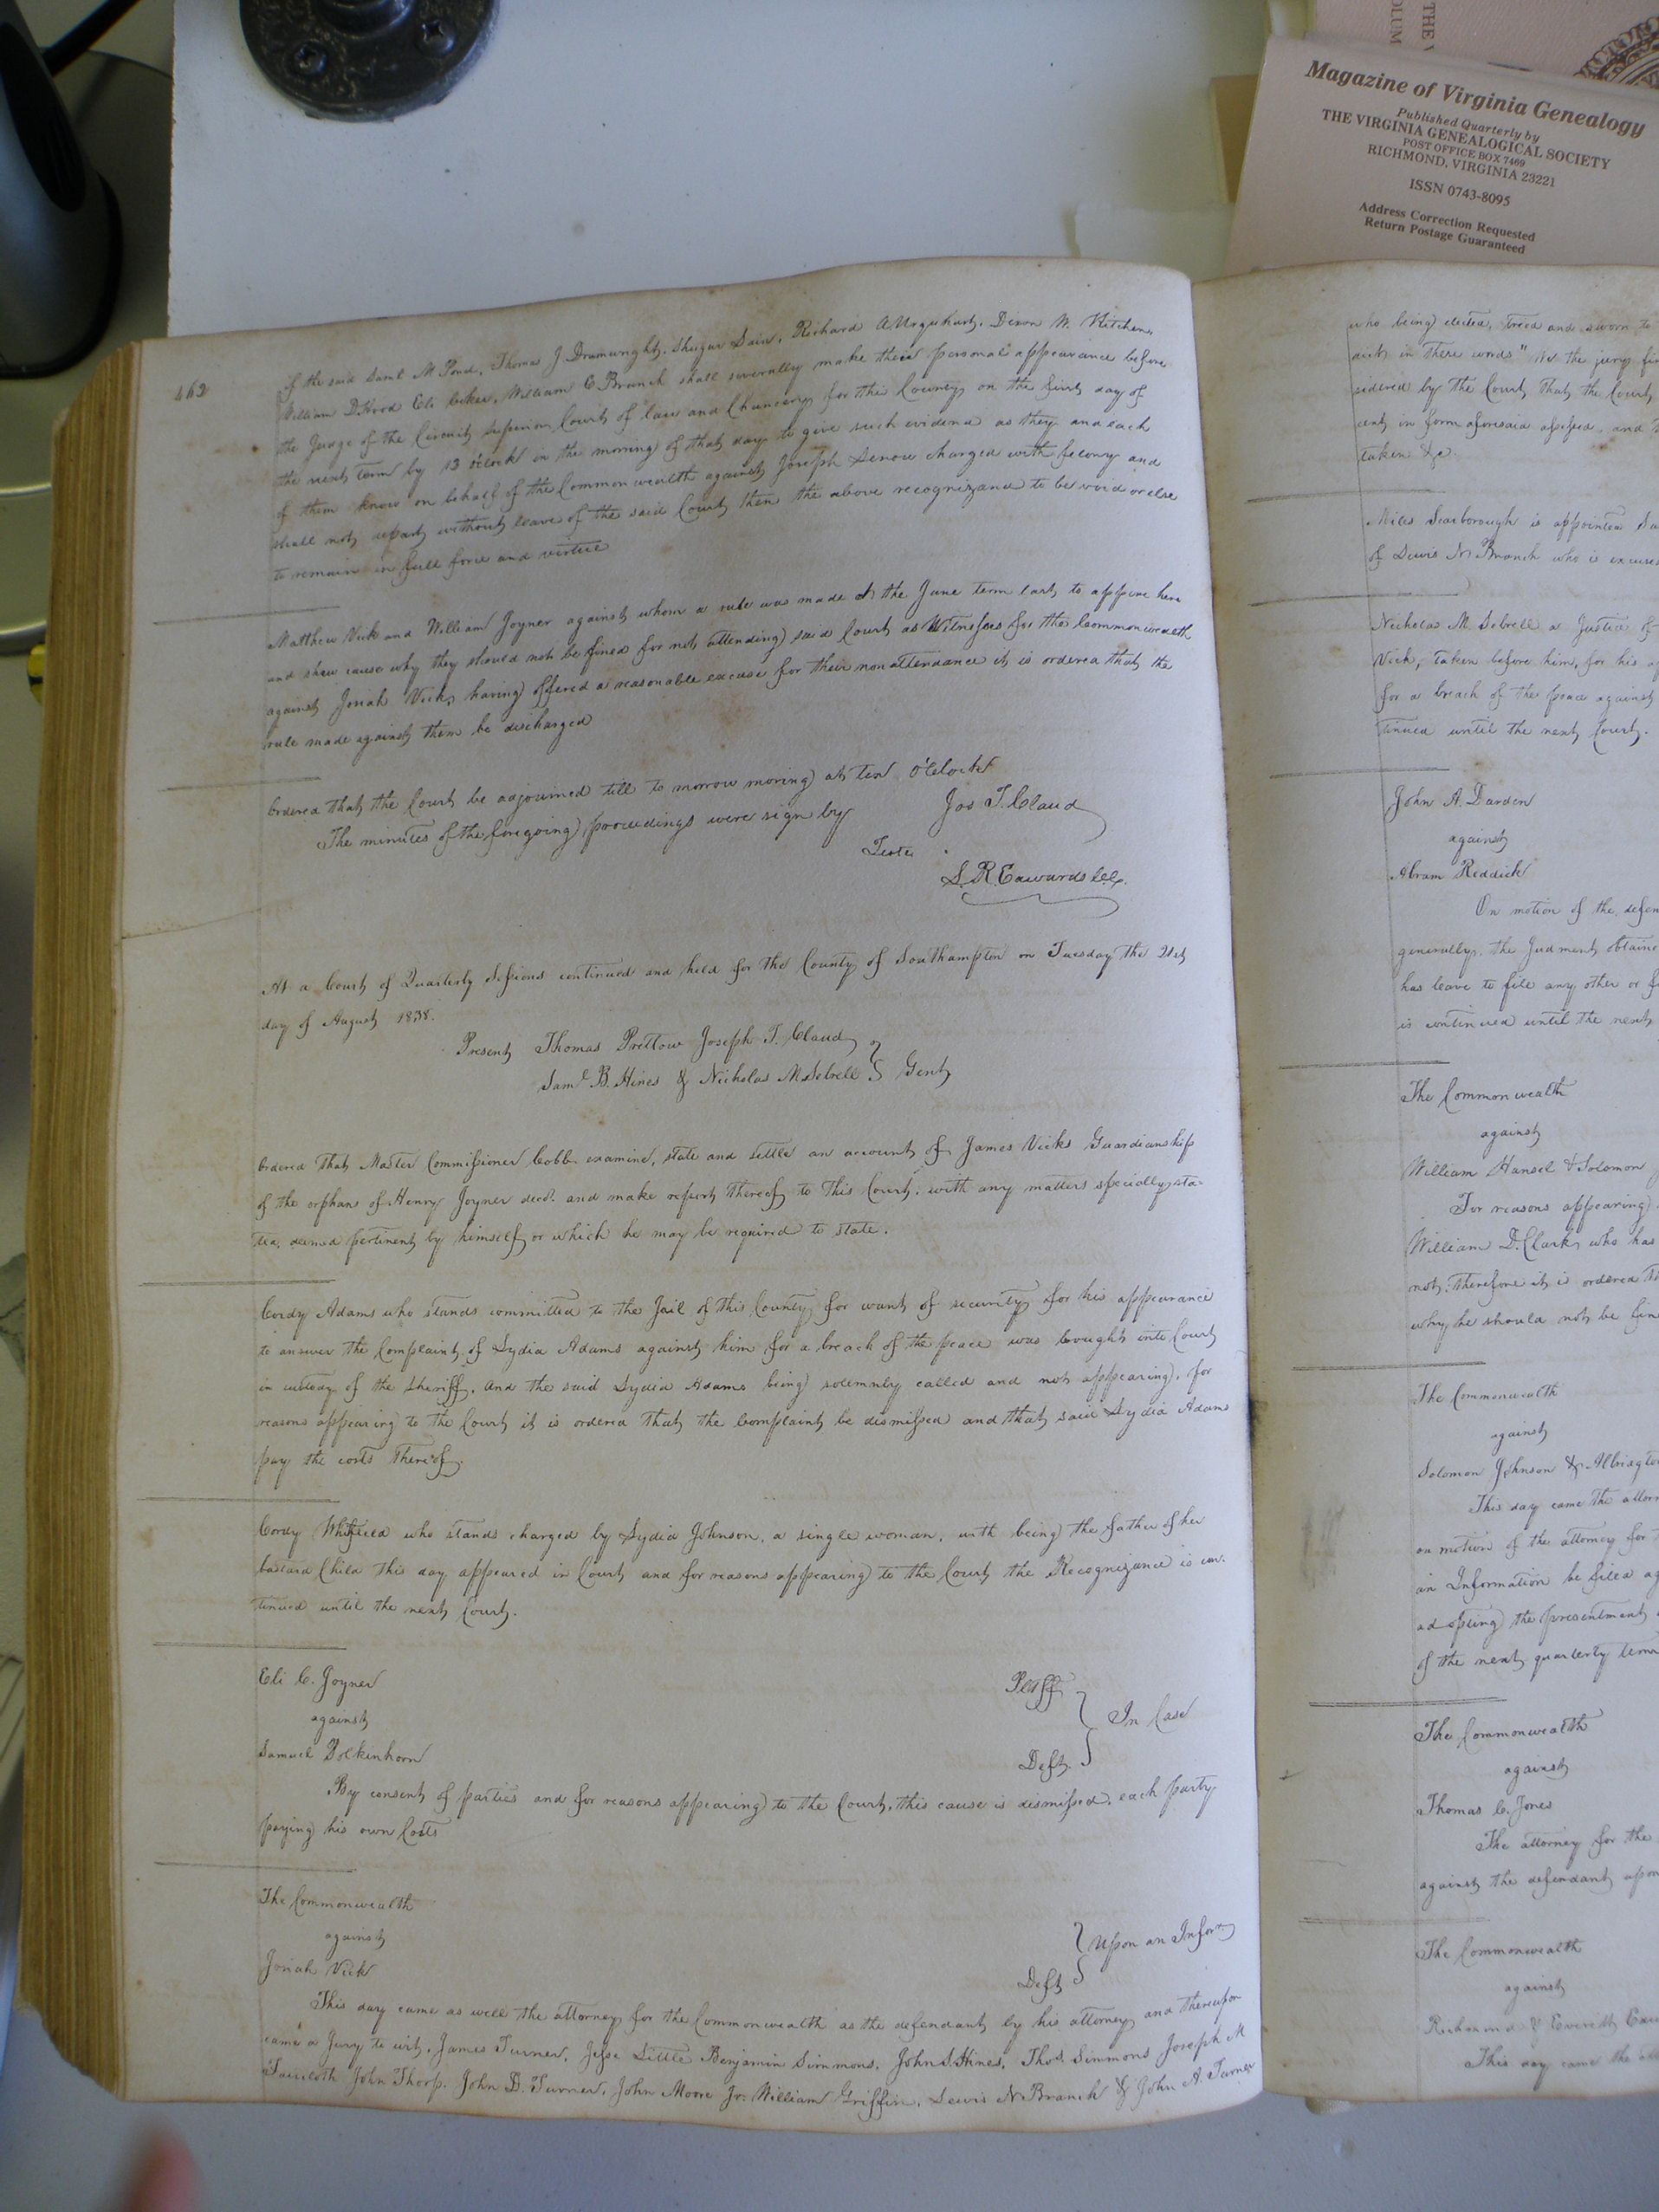 THE V
OLUM
Magazine of Virginia Genealogy
Published Quarterly by
THE VIRGINIA GENEALOGICAL SOCIETY
POST OFFICE BOX 7469
RICHMOND, VIRGINIA 23221
ISSN 0743-8095
Address Correction Requested
Return Postage Guaranteed
462
of the said Saml M Pond, Thomas J. Richard A Urquhart, Dixon W. Kitchen,
William D. Hood Eli William C Branch shall severally make their personal appearance before
the Judge of the Circuit Superior Court of law and Chancery for this County on the first day of
the next term by 12 o'clock in the morning of that day to give such evidence as they and each
of them know on behalf of the Commonwealth against Joseph charged with felony and
shall not depart without leave of the said Court then the above recognizance to be void or else
to remain in full force and virtue
Matthew Vick and William Joyner against whom a rule was made at the June term last to appear here
and shew cause why they should not be fined for not attending said Court as Witnesses for the Commonwealth
against Josiah Vick, having offered a reasonable excuse for their non attendance it is ordered that the
rule made against them be discharged
Ordered that the Court be adjourned till to morrow moring at ten o'Clock
The minutes of the foregoing proceedings were sign by Jos T. Claud
Teste
S. R. Edwards
At a Court of Quarterly Sessions continued and held for the County of Southampton on Tuesday the 21st
day of August 1838.
Present Thomas Pretlow Joseph T. Claud
Saml B. Hines & Nicholas M Sebrell } Gent
Ordered that Master Commissioner Cobb examine, state and settle an account of James Vicks Guardianship
of the orphans of Henry Joyner decd. and make report thereof to this Court, with any matters specially sta-
ted, deemed pertinent by himself or which he may be required to state.
Cordy Adams who stands committed to the Jail of this County for want of security for his appearance
to answer the Complaint of Lydia Adams against him for a breach of the peace was brought into Court
in custody of the Sheriff, and the said Lydia Adams being solemnly called and not appearing, for
reasons appearing to the Court it is ordered that the Complaint be dismissed and that said Lydia Adams
pay the costs thereof.
Cordy Whitfield who stands charged by Lydia Johnson, a single woman, with being the father of her
bastard Child this day appeared in Court and for reasons appearing to the Court the Recognizance is con-
tinued until the next Court.
Eli C. Joyner Pltff
against } In Case
Samuel Bolkinhorn Deft.
By consent of parties and for reasons appearing to the Court, this cause is dismissed, each party
paying his own Costs
The Commonwealth
against } Upon an Infor.
Josiah Vick Deft
This day came as well the attorney for the Commonwealth as the defendant by his attorney and thereupon
came a Jury to wit, James Turner, Jesse Little Benjamin Simmons, John S. Hines, Thos. Simmons Joseph M
John Thorp, John D. Turner, John Moore Jr. William Griffin, Lewis N Branch & John A. Turner
who being elected, tried and sworn to
in these words "We the jury fi
sidered by the Court that the Court
in form aforesaid assessed, and
taken &c.
Miles Scarborough is appointed Su
of Lewis N Branch who is excused
Nicholas M. Sebrell a Justice of
Vick, taken before him, for his a
for a breach of the peace against
tinued until the next Court.
John A. Darden
against
Abram Reddick
On motion of the defen
generally, the Judment obtaine
has leave to file any other or
is continued until the next
The Commonwealth
against
William Hansel & Solomon
For reasons appearing
William D. Clark, who has
not, therefore it is ordered
why he should not be fin
The Commonwealth
against
Solomon Johnson & Albridgto
This day came the attor
on motion of the attorney for
an Information be filed ag
the presentment
of the next quarterly term
The Commonwealth
against
Thomas C. Jones
The attorney for the
against the defendant upon
The Commonwealth
against
Richmond & Everett
This day came the